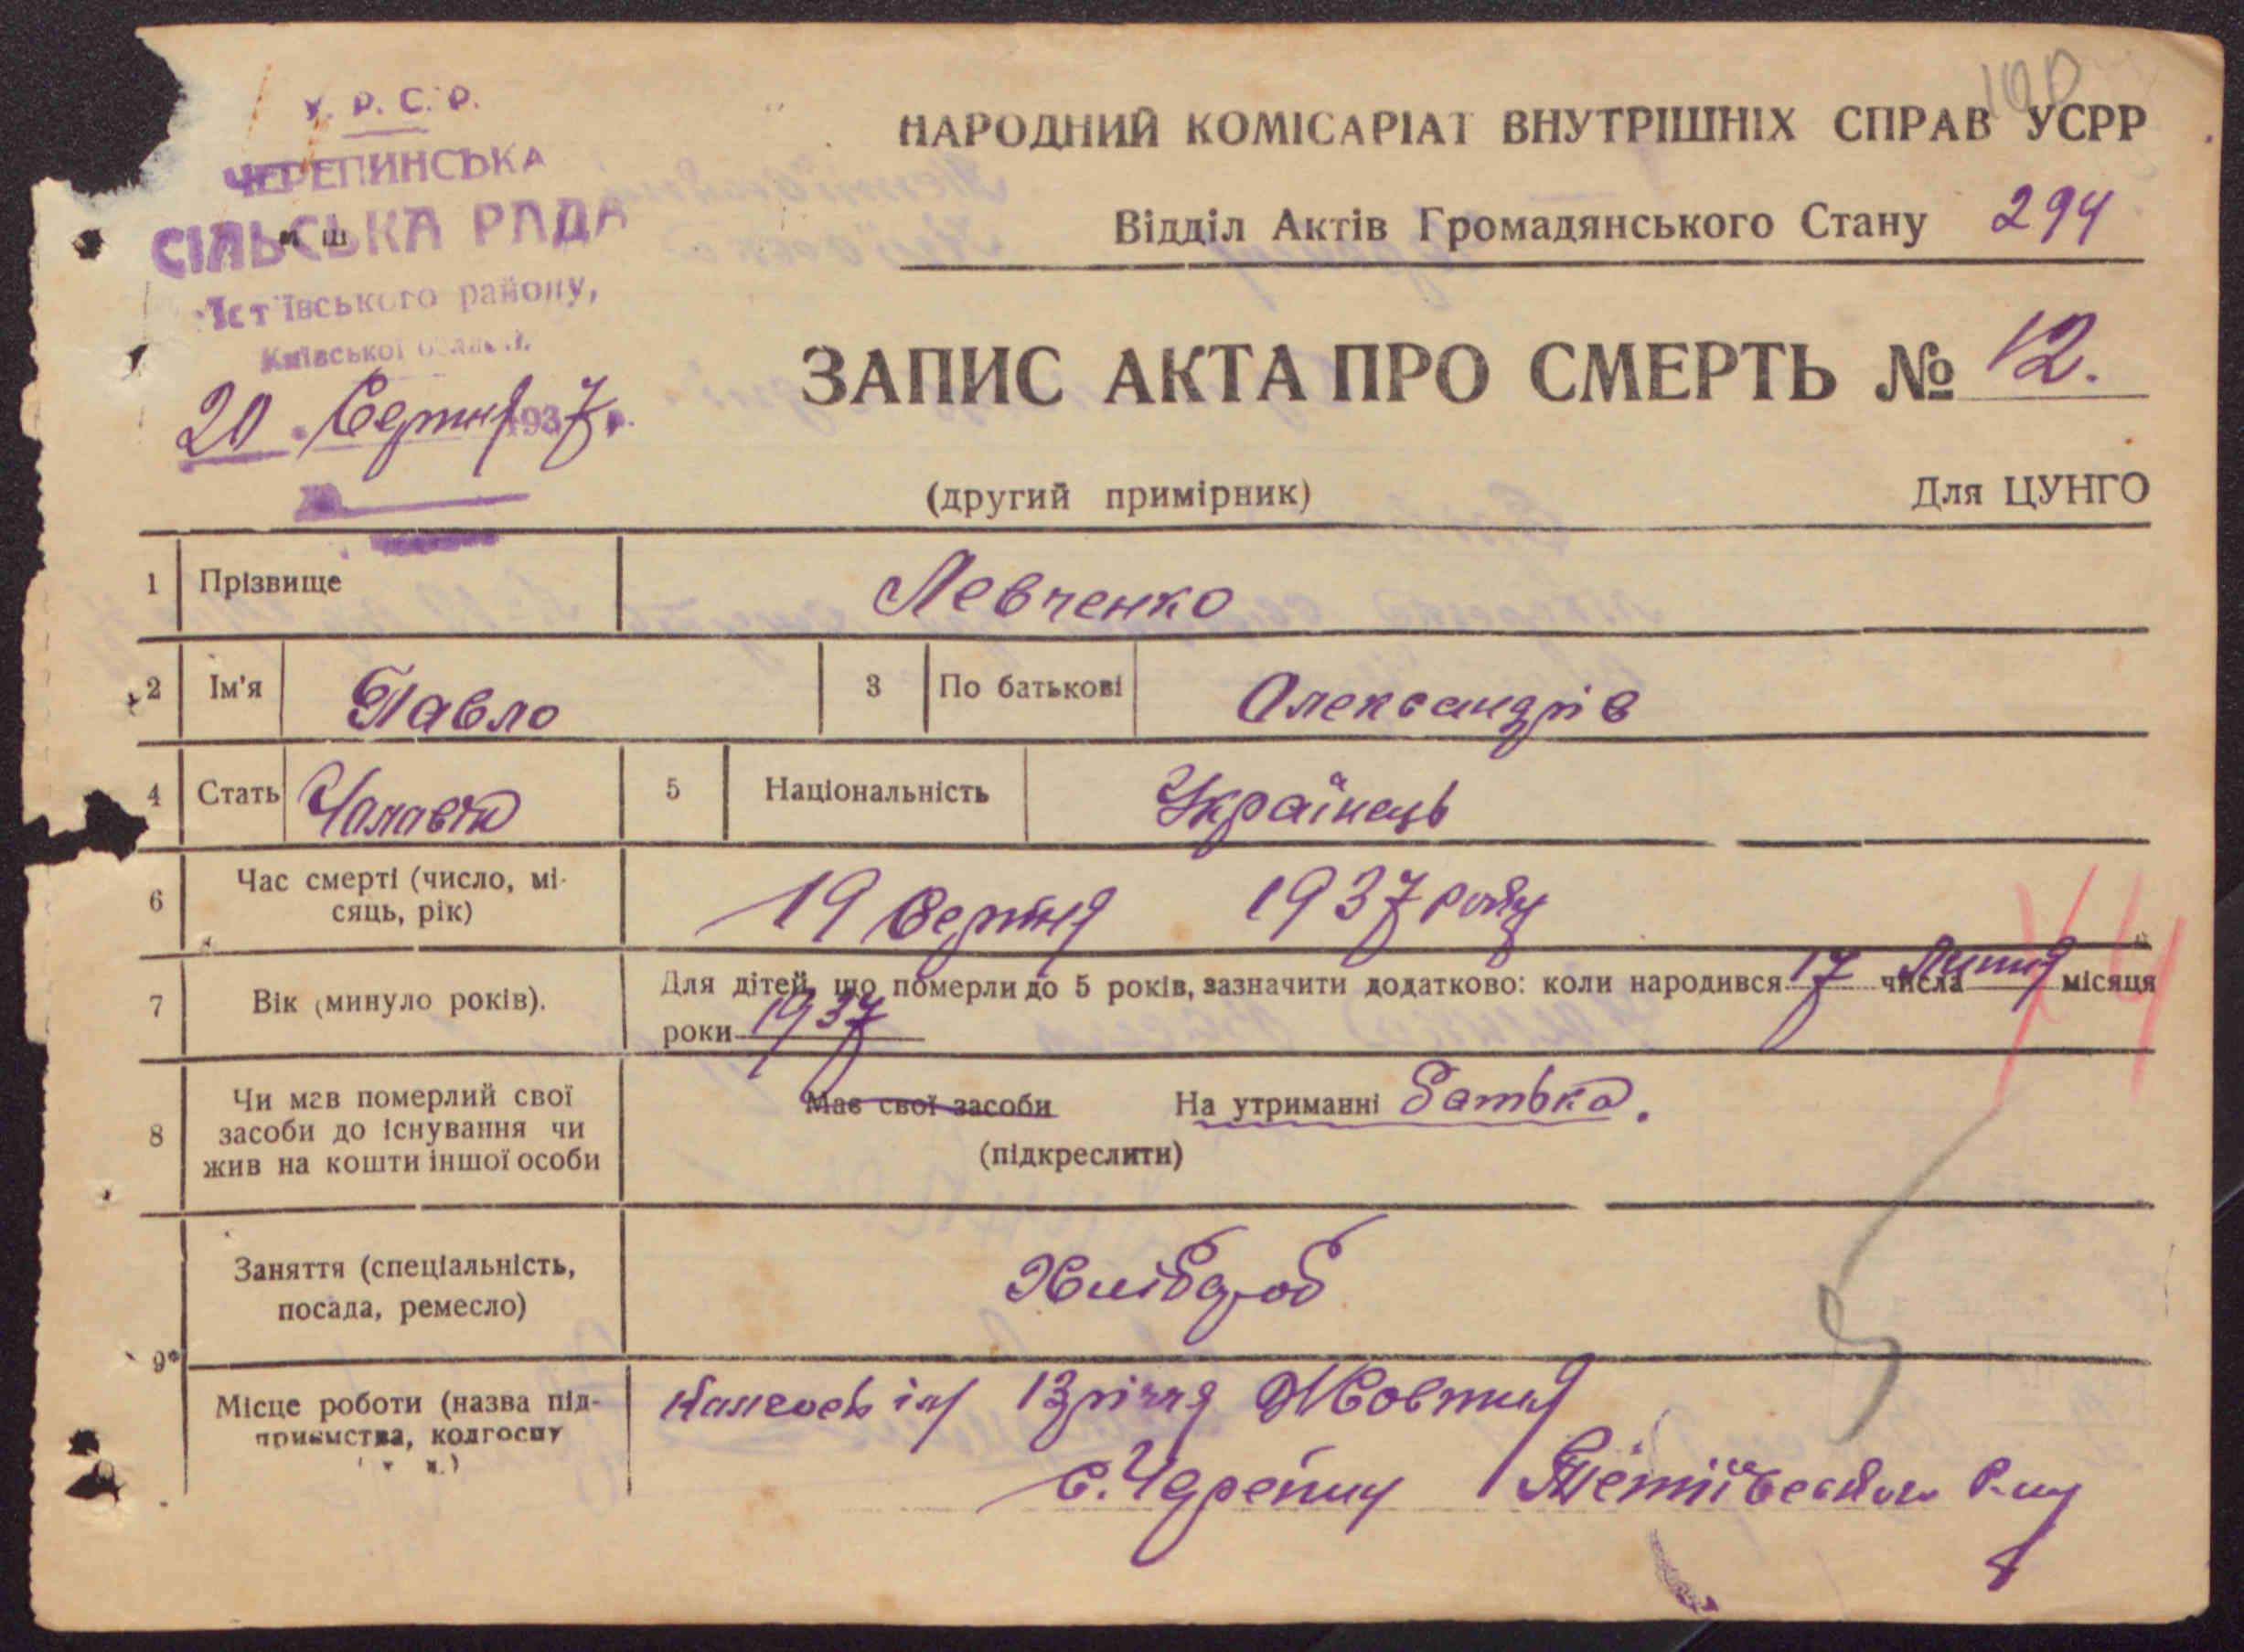 У. Р. С. Р.
ЧЕРЕПИНСЬКА
СІЛЬСЬКА РАДА
району,
Київської
20 Серпня 1937 р.
100
НАРОДНИЙ КОМІСАРІАТ ВНУТРІШНІХ СПРАВ УСРР
Відділ Актів Громадянського Стану 294
ЗАПИС АКТА ПРО СМЕРТЬ № 12.
(другий примірник) Для ЦУНГО
1 Прізвище Левченко
2 Ім'я Павло 3 По батькові Олександрів
4 Стать Чоловік 5 Національність Українець
6 Час смерті (число, мі-
сяць, рік) 19 Серпня 1937 року
7 Вік (минуло років). Для дітей, що померли до 5 років, зазначити додатково: коли народився 17 числа Липня місяця
роки 1937
8 Чи мав померлий свої
засоби до існування чи
жив на кошти іншої особи
Має свої засоби На утриманні батька.
(підкреслити)
9 Заняття (спеціальність,
посада, ремесло) Хлібороб
Місце роботи (назва під-
приємства, колгоспу
13 річчя Жовтня
с. Черепин Тетіївського р-ну